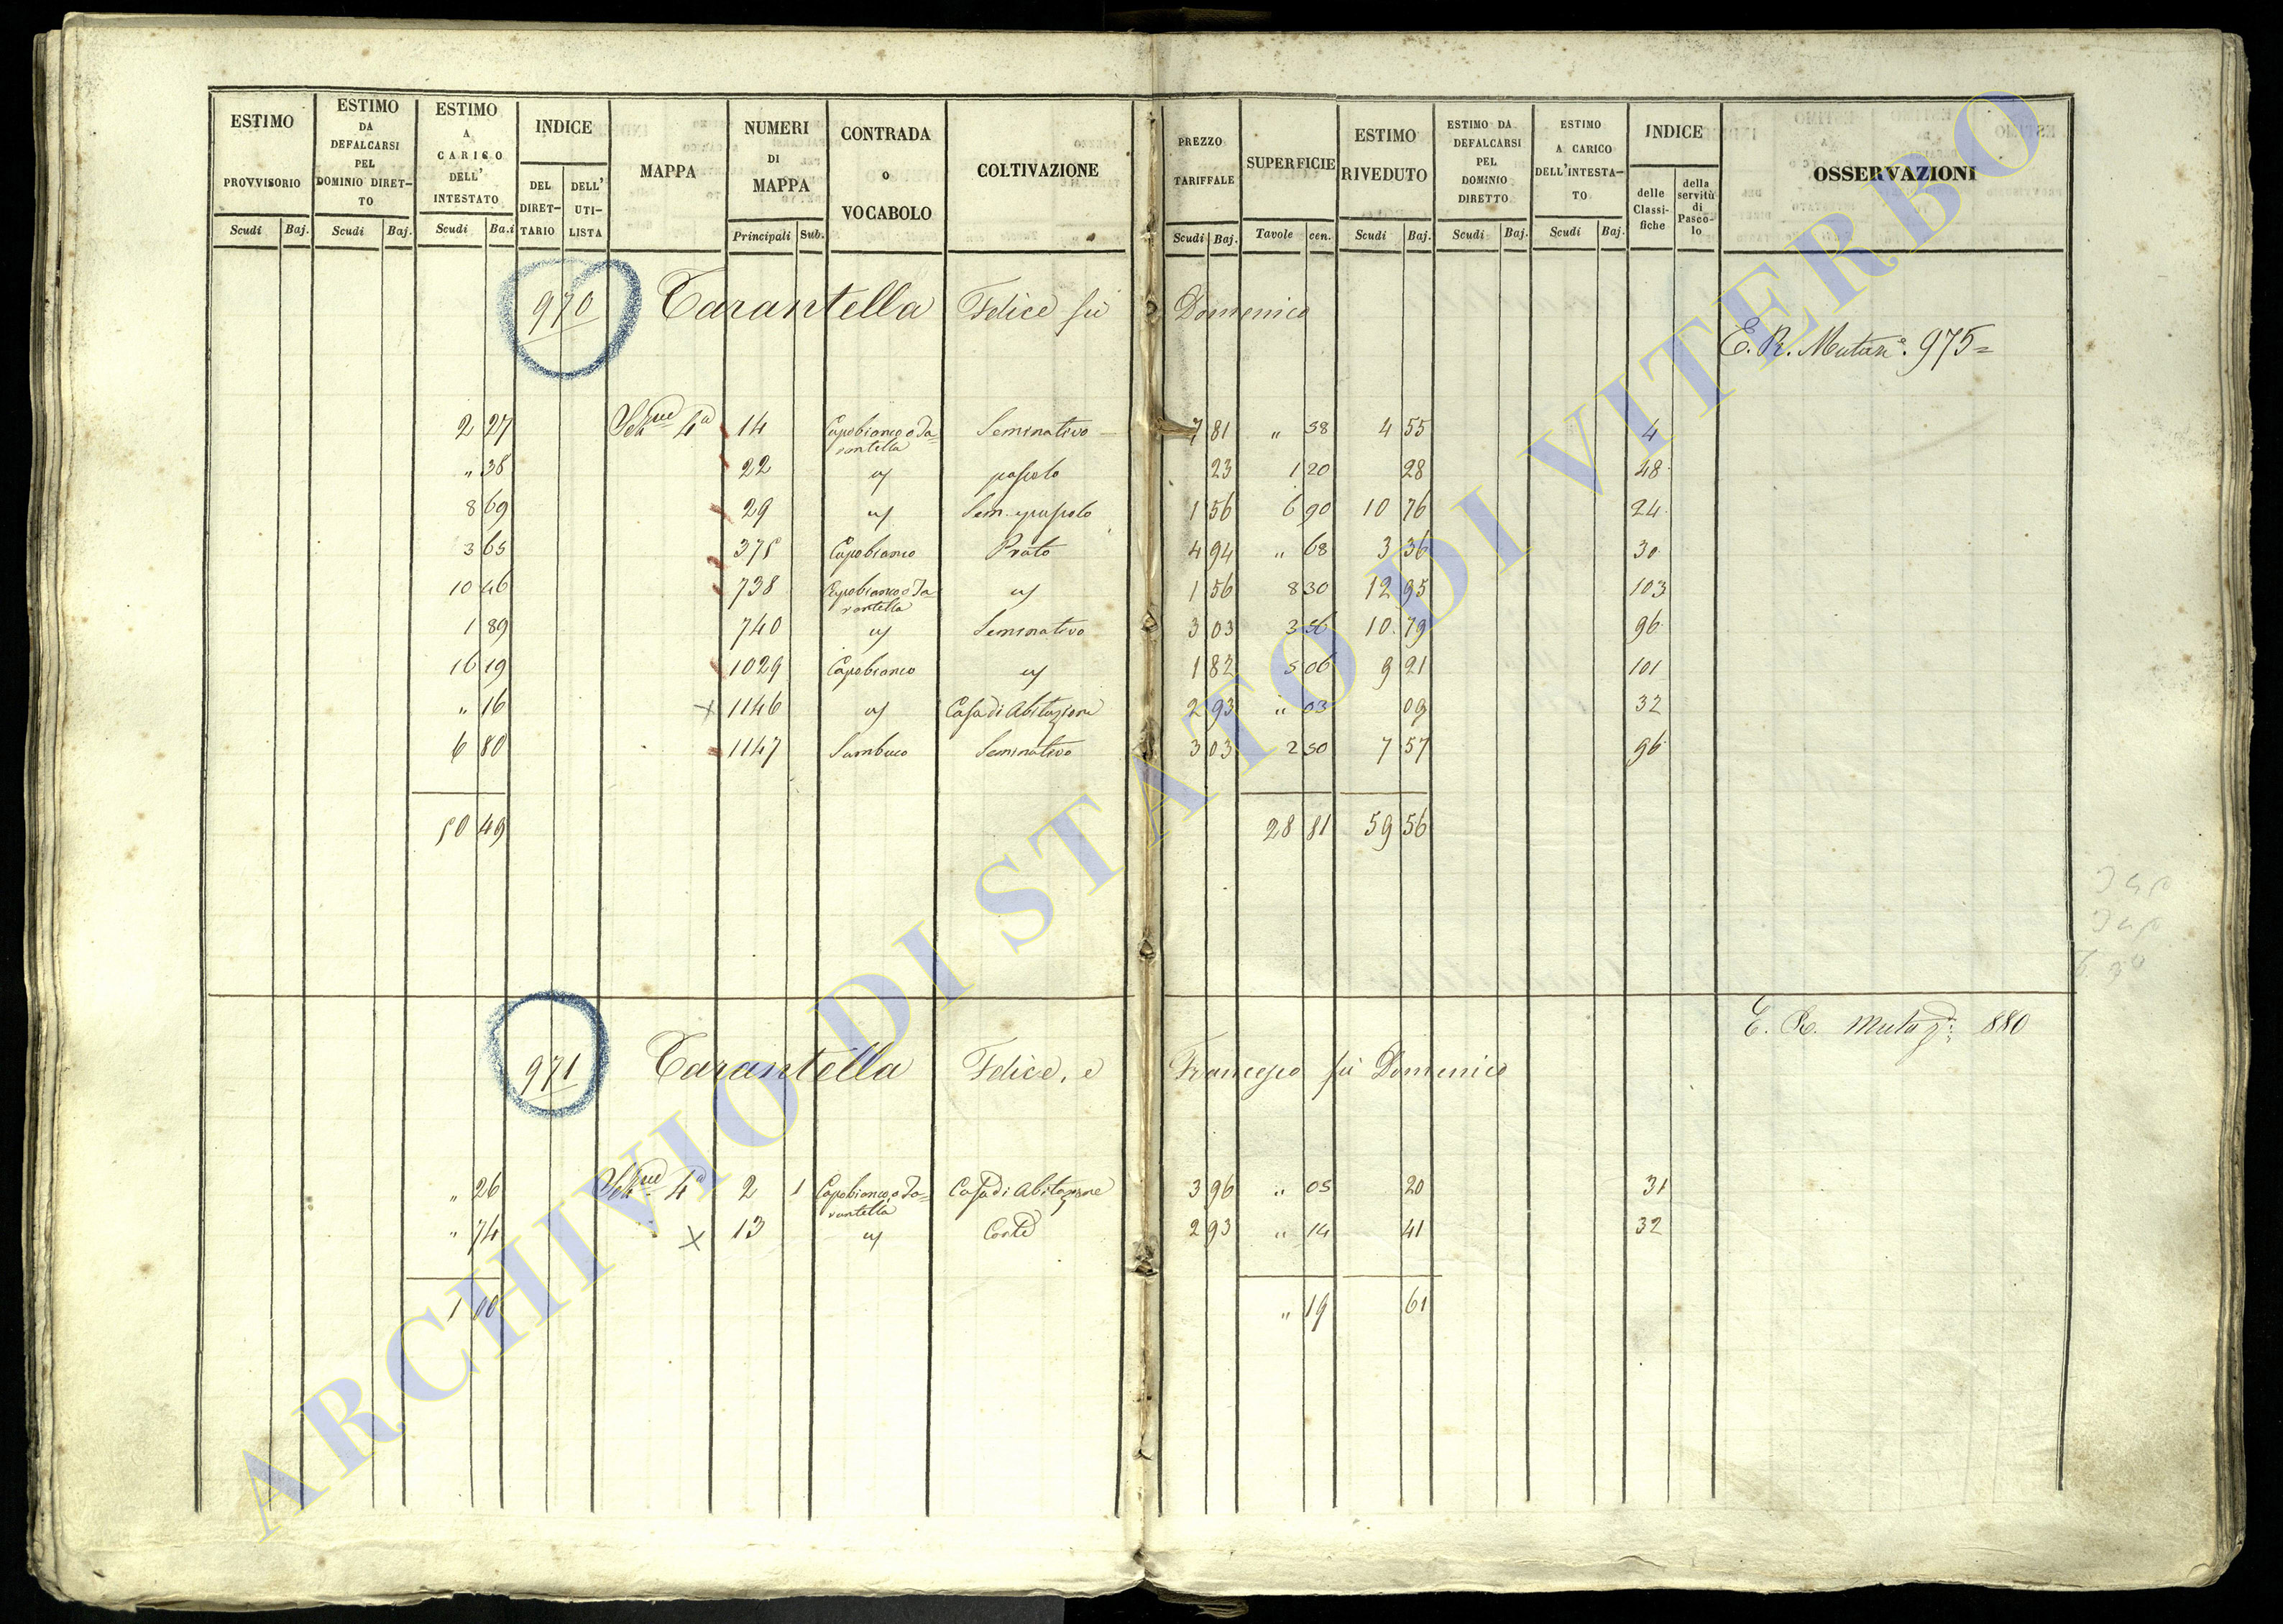 ESTIMO PROVVISORIO | ESTIMO DA DEFALCARSI PEL DOMINIO DIRET-TO | ESTIMO A CARICO DELL' INTESTATO | INDICE | MAPPA | NUMERI DI MAPPA | CONTRADA o VOCABOLO | COLTIVAZIONE | PREZZO TARIFFALE | SUPERFICIE | ESTIMO RIVEDUTO | ESTIMO DA DEFALCARSI PEL DOMINIO DIRETTO | ESTIMO A CARICO DELL'INTESTA-TO | INDICE | OSSERVAZIONI
DEL DIRET-TARIO | DELL' UTI-LISTA | delle Classi-fiche | della servitù di Pasco-lo
Scudi | Baj. | Scudi | Baj. | Scudi | Ba.i | Principali | Sub. | Scudi | Baj. | Tavole | cen. | Scudi | Baj. | Scudi | Baj. | Scudi | Baj.
970 Tarantella Felice fù Domenico
E. R. Mutazne. 975=
2 27 | Sezne 4a | 14 | Capobianco o Ta=rantella | Seminativo | 7 81 | " 58 | 4 55 | 4
" 38 | 22 | " | pascolo | 23 | 1 20 | 28 | 48
8 69 | 29 | " | Sem. e pascolo | 1 56 | 6 90 | 10 76 | 24
3 65 | 375 | Capobianco | Prato | 4 94 | " 68 | 3 36 | 30
10 46 | 738 | Capobianco o Ta=rantella | " | 1 56 | 8 30 | 12 95 | 103
1 89 | 740 | " | Seminativo | 3 03 | 3 56 | 10 79 | 96
16 19 | 1029 | Capobianco | " | 1 82 | 5 06 | 9 21 | 101
" 16 | 1146 | " | Casa di Abitazione | 2 93 | " 03 | 09 | 32
6 80 | 1147 | Sambuco | Seminativo | 3 03 | 2 50 | 7 57 | 96
50 49 | 28 81 | 59 56
E. R. Mutaz: 880
971 Tarantella Felice, e Francesco fù Domenico
" 26 | Sezne 4a | 2 | 1 | Capobianco o Ta=rantella | Casa di Abitazione | 3 96 | " 05 | 20 | 31
" 74 | 13 | " | Corte | 2 93 | " 14 | 41 | 32
1 00 | " 19 | 61
ARCHIVIO DI STATO DI VITERBO